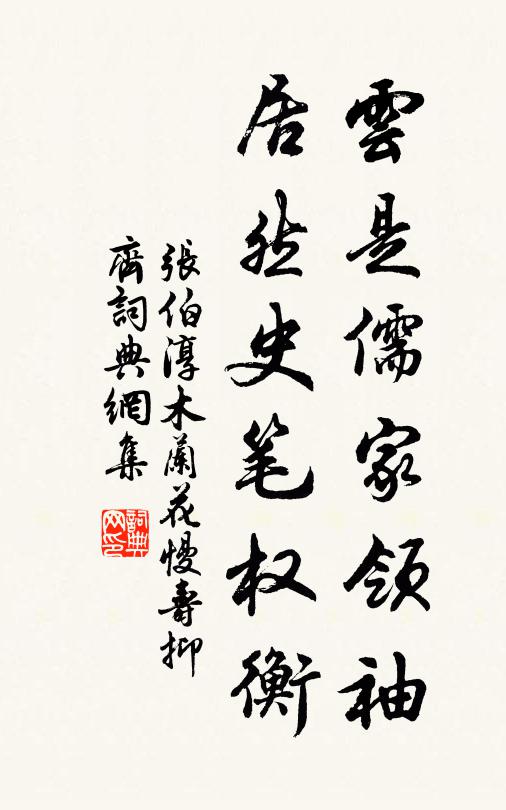 雲是儒家领袖
居然史笔权衡
張伯淳木蘭花慢壽抑
齋詞典網集
詞典网印